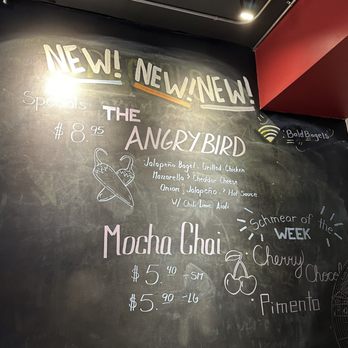 NEW! NEW! NEW!
Specials
THE
$8.95
ANGRYBIRD
Jalapeño Bagel, Grilled Chicken
Mozzarella & Cheddar Cheese
Onion, Jalapeño, & Hot Sauce
W/ Chili Lime Aioli
: BaldBagels
Schmear of the
WEEK
Mocha Chai
Cherry
$5.40 - SM
Pimento
$5.90 - LG